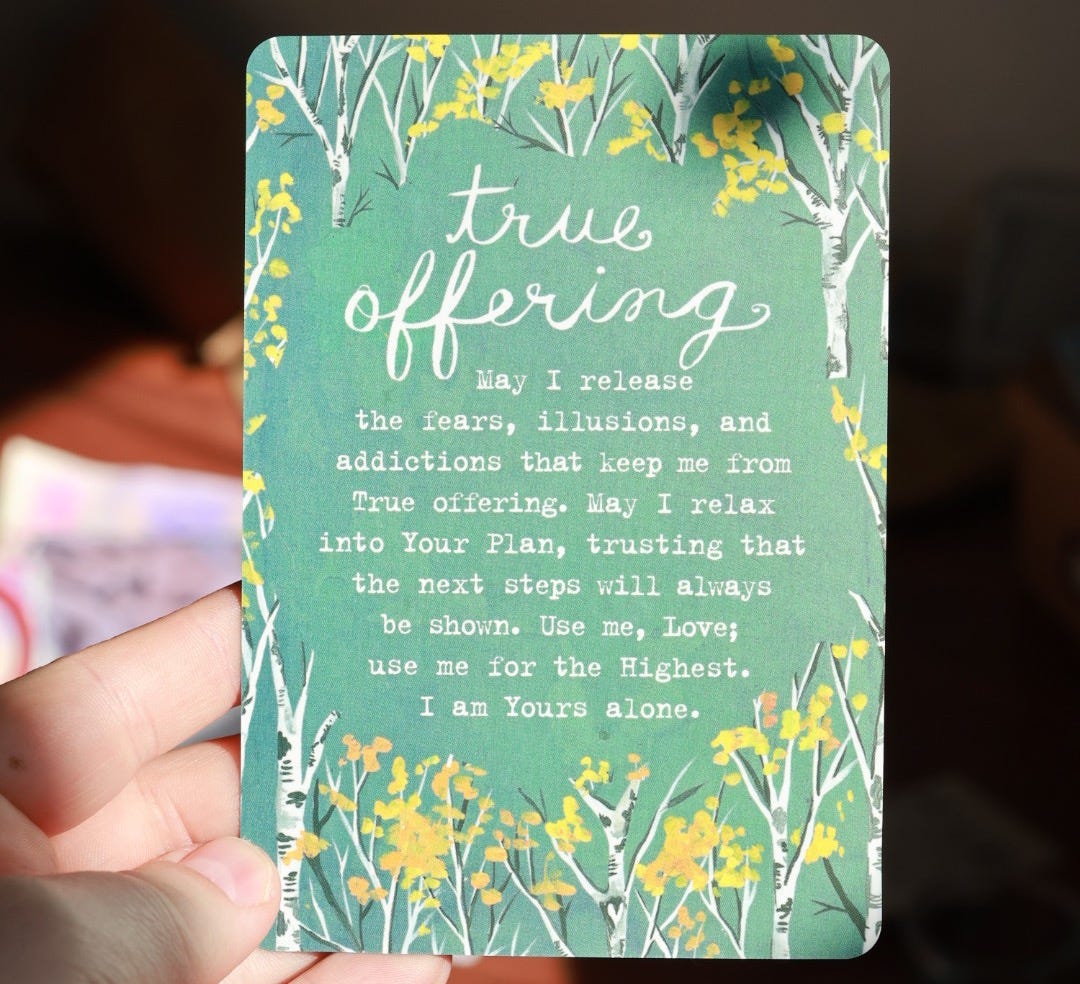 true
offering
May I release
the fears, illusions, and
addictions that keep me from
True offering. May I relax
into Your Plan, trusting that
the next steps will always
be shown. Use me, Love;
use me for the Highest.
I am Yours alone.